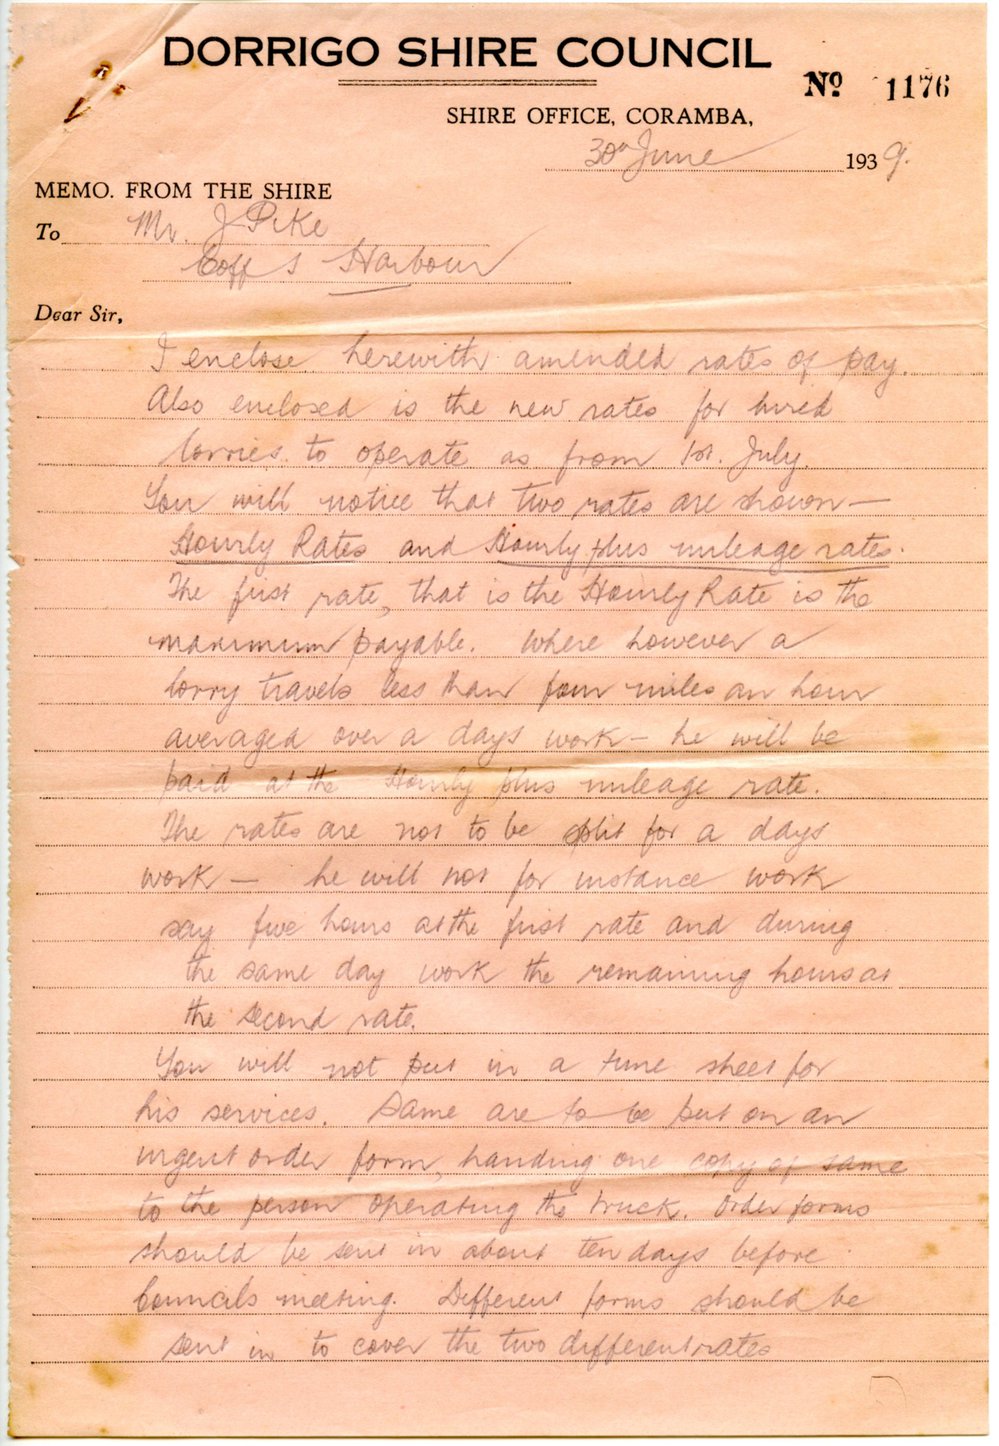 DORRIGO SHIRE COUNCIL
Nº 1176
SHIRE OFFICE, CORAMBA,
30th June 1939.
MEMO. FROM THE SHIRE
To Mr. J Pike
Coffs Harbour
Dear Sir,
I enclose herewith amended rates of pay.
Also enclosed is the new rates for hired
lorries. to operate as from 1st. July.
You will notice that two rates are shown —
Hourly Rates and Hourly plus mileage rates.
The first rate, that is the Hourly Rate is the
maximum payable. Where however a
lorry travels less than four miles an hour
averaged over a days work — he will be
paid at the Hourly plus mileage rate.
The rates are not to be split for a days
work — he will not for instance work
say five hours at the first rate and during
the same day work the remaining hours at
the second rate.
You will not put in a time sheet for
his services. Same are to be put on an
urgent order form, handing one copy of same
to the person operating the truck. Order forms
should be sent in about ten days before
Councils meeting. Different forms should be
sent in to cover the two different rates